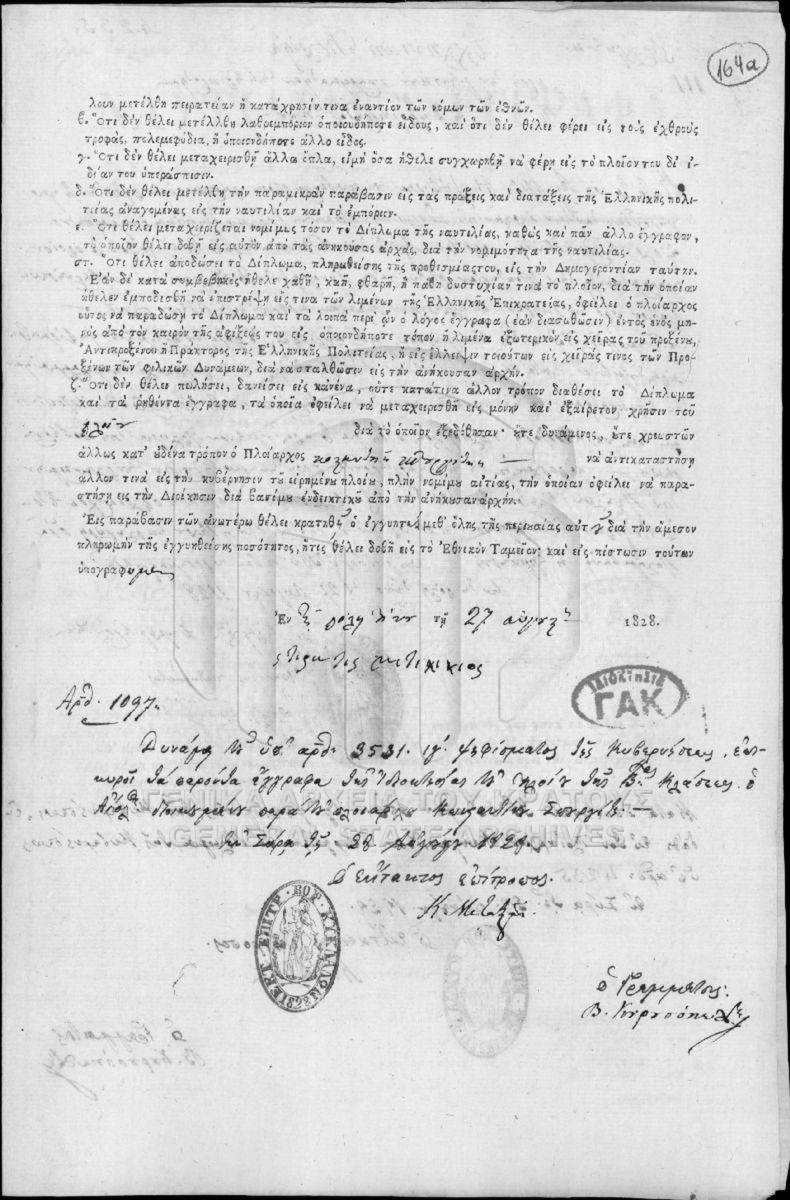 164a
λουν μετέλθῃ πειρατείαν ἢ κατάχρησίν τινα ἐναντίον τῶν νόμων τῶν ἐθνῶν.
β. Ὅτι δὲν θέλει μετέλθῃ λαθρεμπόριον ὁποιουδήποτε εἴδους, καὶ ὅτι δὲν θέλει φέρει εἰς τοὺς ἐχθροὺς
τροφάς, πολεμεφόδια, ἢ ὁποιονδήποτε ἄλλο εἶδος.
γ. Ὅτι δὲν θέλει μεταχειρισθῆ ἄλλα ὅπλα, εἰμὴ ὅσα ἤθελε συγχωρηθῆ νὰ φέρῃ εἰς τὸ πλοῖόν του δι' ἰ-
δίαν του ὑπεράσπισιν.
δ. Ὅτι δὲν θέλει μετέλθῃ τὴν παραμικρὰν παράβασιν εἰς τὰς πράξεις καὶ διατάξεις τῆς Ἑλληνικῆς πολι-
τείας ἀναγομένας εἰς τὴν ναυτιλίαν καὶ τὸ ἐμπόριον.
ε. Ὅτι θέλει μεταχειρίζεται νομίμως τόσον τὸ Δίπλωμα τῆς ναυτιλίας, καθὼς καὶ πᾶν ἄλλο ἔγγραφον,
τὸ ὁποῖον θέλει δοθῆ εἰς αὐτὸν ἀπὸ τὰς ἀνηκούσας ἀρχάς, διὰ τὴν νομιμότητα τῆς ναυτιλίας.
στ. Ὅτι θέλει ἀποδώσει τὸ Δίπλωμα, πληρωθείσης τῆς προθεσμίας του, εἰς τὴν Δημογεροντίαν ταύτην.
Ἐὰν δὲ κατὰ συμβεβηκὸς ἤθελε χαθῆ, καῇ, φθαρῆ, ἢ πάθῃ δυστυχίαν τινὰ τὸ πλοῖον, διὰ τὴν ὁποίαν
ἤθελεν ἐμποδισθῆ νὰ ἐπιστρέψῃ εἴς τινα τῶν λιμένων τῆς Ἑλληνικῆς Ἐπικρατείας, ὀφείλει ὁ πλοίαρχος
οὗτος νὰ παραδώσῃ τὸ Δίπλωμα καὶ τὰ λοιπὰ περὶ ὧν ὁ λόγος ἔγγραφα (ἐὰν διασωθῶσιν) ἐντὸς ἑνὸς μη-
νὸς ἀπὸ τὸν καιρὸν τῆς ἀφίξεώς του εἰς ὁποιονδήποτε τόπον, ἢ λιμένα ἐξωτερικὸν εἰς χεῖρας τοῦ προξένου,
Ἀντιπροξένου ἢ Πράκτορος τῆς Ἑλληνικῆς Πολιτείας, ἢ εἰς ἔλλειψιν τοιούτων εἰς χεῖράς τινος τῶν Προ-
ξένων τῶν φιλικῶν Δυνάμεων, διὰ νὰ σταλθῶσιν εἰς τὴν ἀνήκουσαν ἀρχήν.
ζ. Ὅτι δὲν θέλει πωλήσει, δανείσει εἰς κἀνένα, οὔτε κατά τινα ἄλλον τρόπον διαθέσει τὸ Δίπλωμα
καὶ τὰ ῥηθέντα ἔγγραφα, τὰ ὁποῖα ὀφείλει νὰ μεταχειρισθῆ εἰς μόνην καὶ ἐξαίρετον χρῆσιν τοῦ
πλοίου διὰ τὸ ὁποῖον ἐξεδόθησαν· ὔτε δυνάμενος, ὔτε χρεωστῶν
ἄλλως κατ' ὐδένα τρόπον ὁ Πλοίαρχος νὰ ἀντικαταστήσῃ
ἄλλον τινὰ εἰς τὴν κυβέρνησιν τῦ εἰρημένου πλοίου, πλὴν νομίμου αἰτίας, τὴν ὁποίαν ὀφείλει νὰ παρα-
στήσῃ εἰς τὴν Διοίκησιν διὰ βασίμου ἐνδεικτικῦ ἀπὸ τὴν ἀνήκυσαν ἀρχήν.
Εἰς παράβασιν τῶν ἀνωτέρω θέλει κρατηθῆ ὁ ἐγγυητὴς μεθ' ὅλης τῆς περιουσίας αὐτοῦ διὰ τὴν ἄμεσον
πληρωμὴν τῆς ἐγγυηθείσης ποσότητος, ἥτις θέλει δοθῆ εἰς τὸ Ἐθνικὸν Ταμεῖον· καὶ εἰς πίστωσιν τούτων
ὑπογράφομαι
Ἐν τῇ 27 αὐγούστ 1828.
Ἀρθ. 1097
Δυνάμει τοῦ ὑπ' ἀρθ. 3531. ιγ'. ψηφίσματος τῆς Κυβερνήσεως, ἐπι-
κυροῖ τὰ παρόντα ἔγγραφα τῆς ἰδιοκτησίας τοῦ πλοίου τῆς Β.ας Κλάσεως ὁ
παρὰ τοῦ πλοιάρχου
Ἐν Σύρᾳ τῇ 28 Αὐγούστ 1828.
Ὁ Ἔκτακτος ἐπίτροπος.
Κ. Μεταξᾶς.
ὁ Γραμματεύς.
ΙΔΙΟΚΤΗΣΙΑ
ΓΑΚ
ΓΕΝΙΚΑ ΑΡΧΕΙΑ ΤΟΥ ΚΡΑΤΟΥΣ
GENERAL STATE ARCHIVES